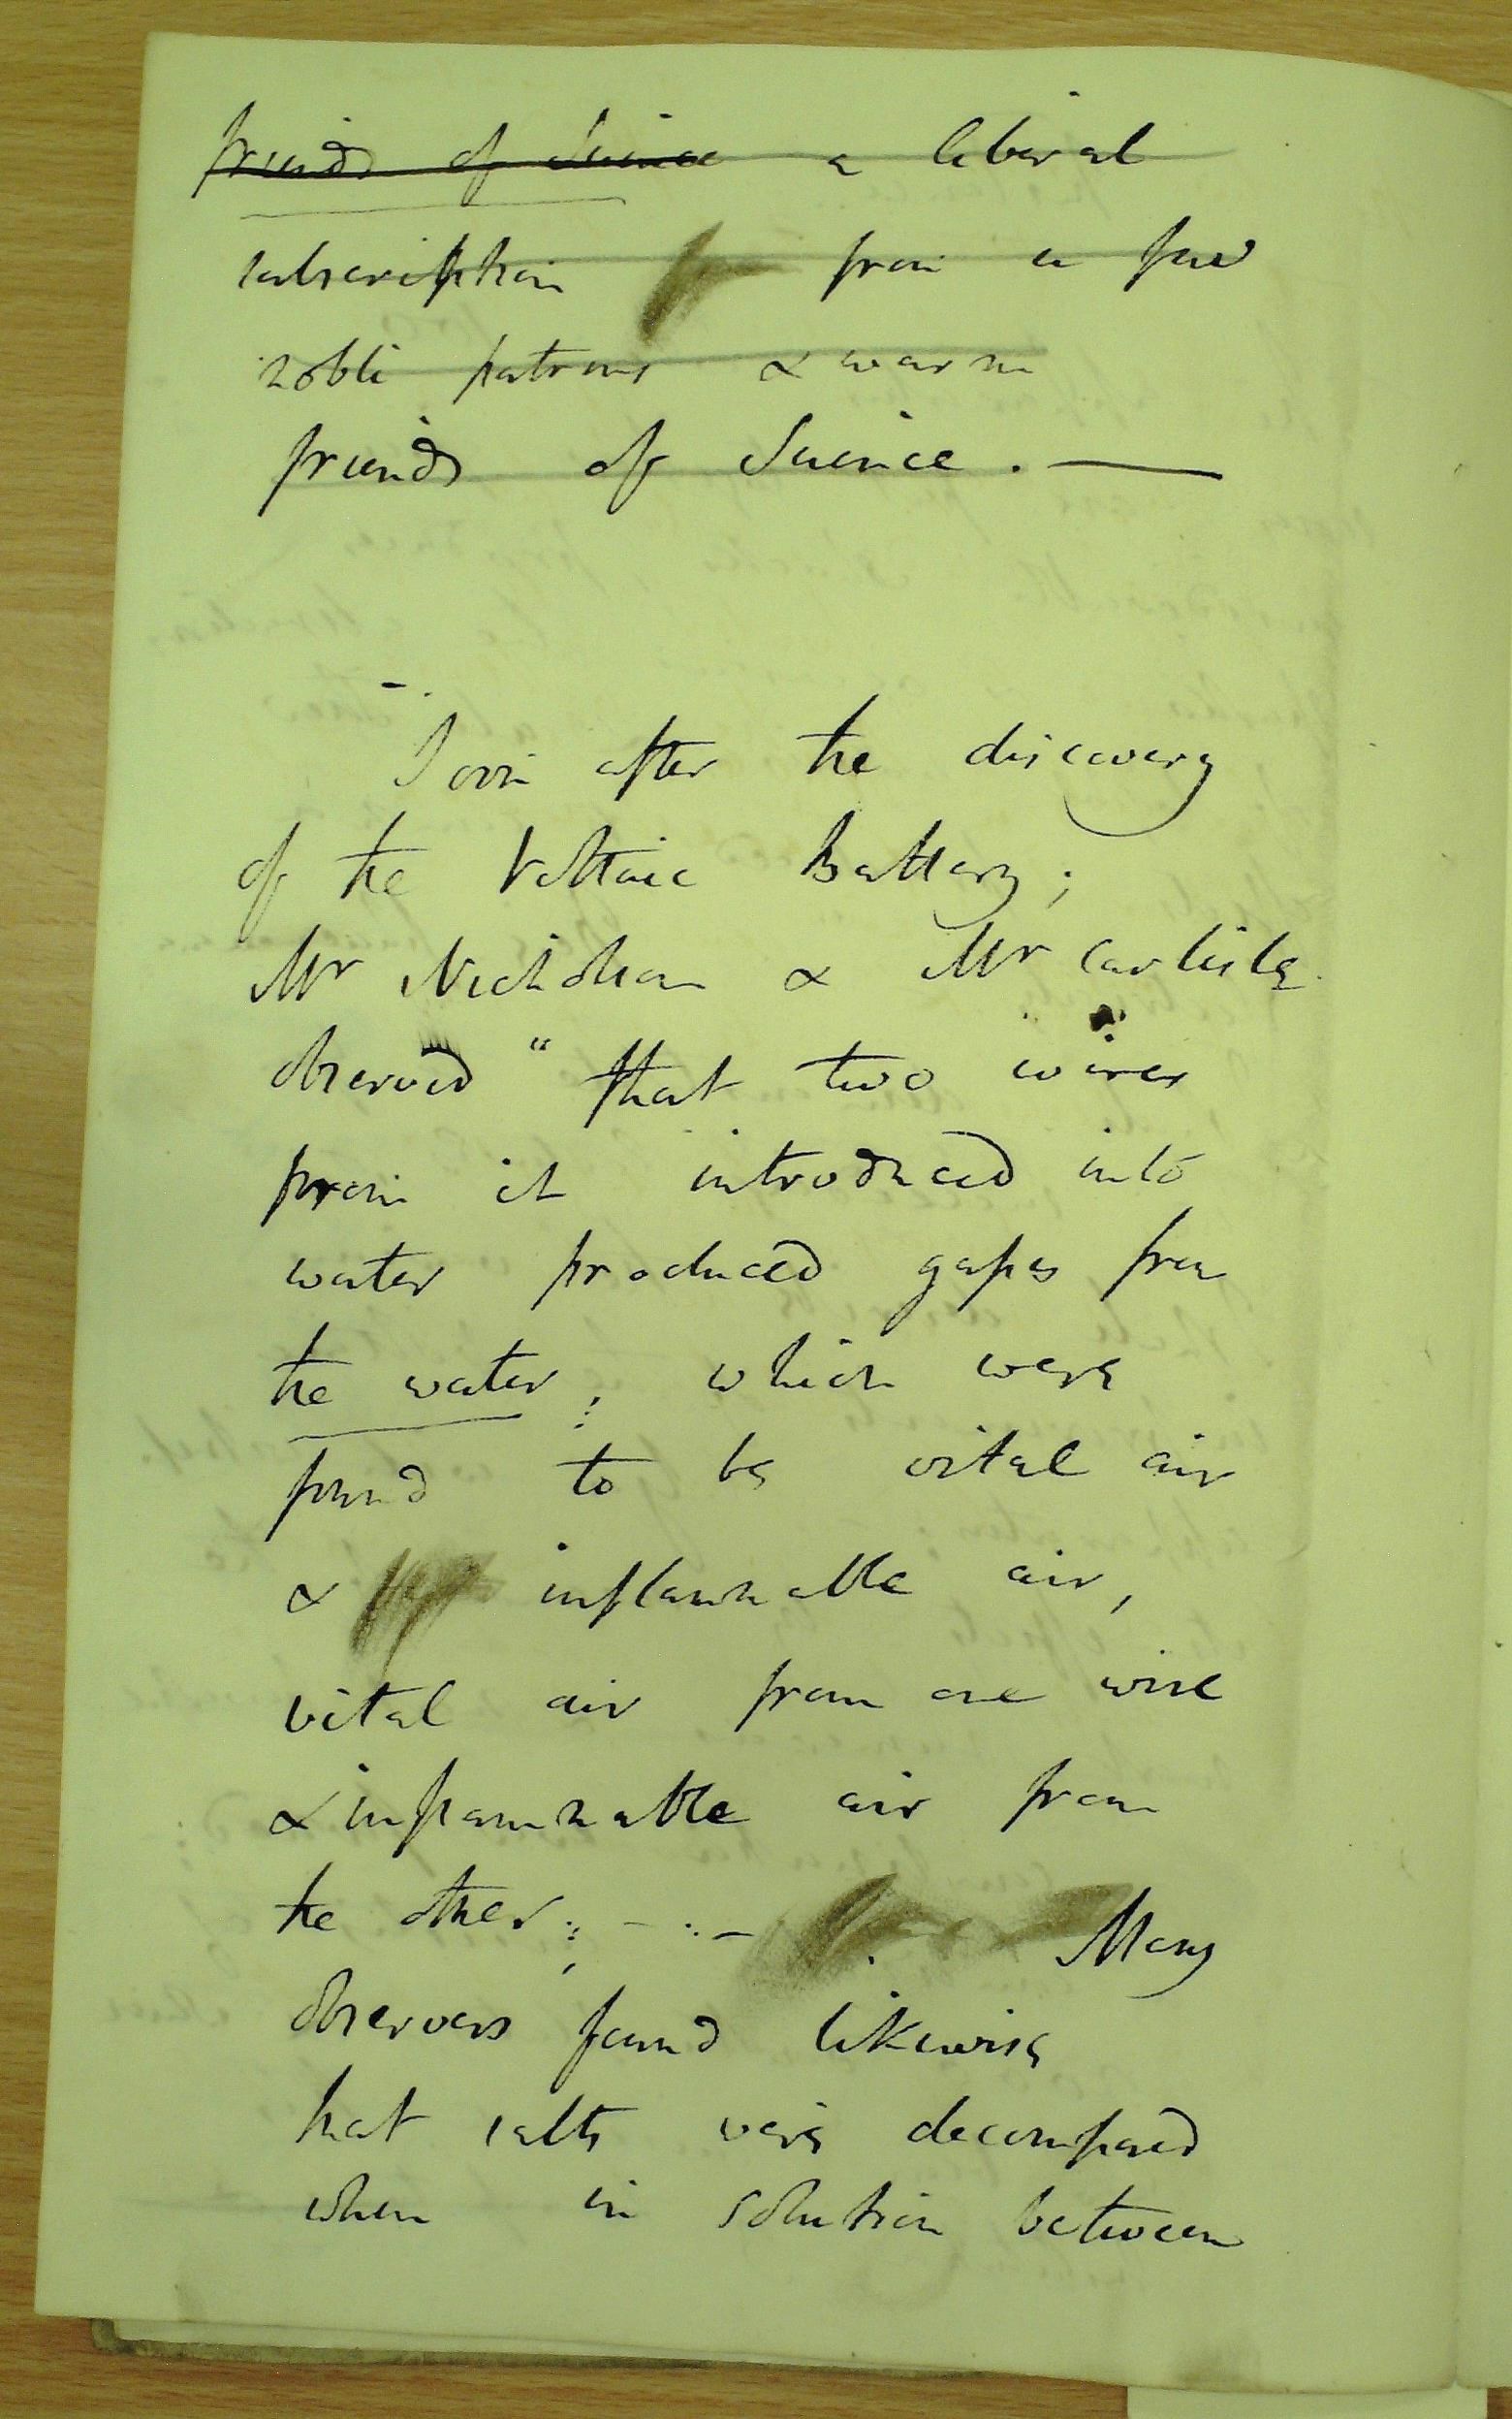 friends of Science a liberal
subscription from a few
noble patrons & warm
friends of Science. —
Soon after the discovery
of the Voltaic Battery;
Mr Nicholson & Mr Carlisle
observed "that two wires
from it introduced into
water produced gases from
the water; which were
found to be vital air
& inflammable air,
vital air from one wire
& inflammable air from
the other; - .- Many
observers found likewise
that salts were decomposed
when in solution between